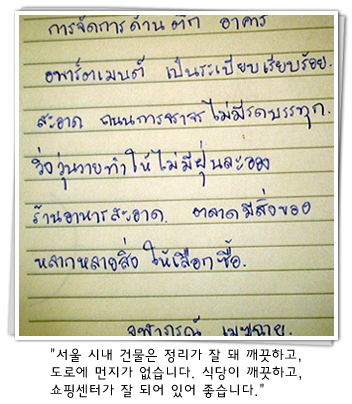 การจัดการด้านตึก อาคาร
อพาร์ตเมนต์ เป็นระเบียบเรียบร้อย.
สะอาด ถนนการจราจรไม่มีรถบรรทุก.
วิ่งวุ่นวายทำให้ไม่มีฝุ่นละออง
ร้านอาหารสะอาด. ตลาดมีสิ่งของ
หลากหลายสิ่ง ให้เลือกซื้อ.
จุฬาภรณ์
"서울 시내 건물은 정리가 잘 돼 깨끗하고,
도로에 먼지가 없습니다. 식당이 깨끗하고,
쇼핑센터가 잘 되어 있어 좋습니다."